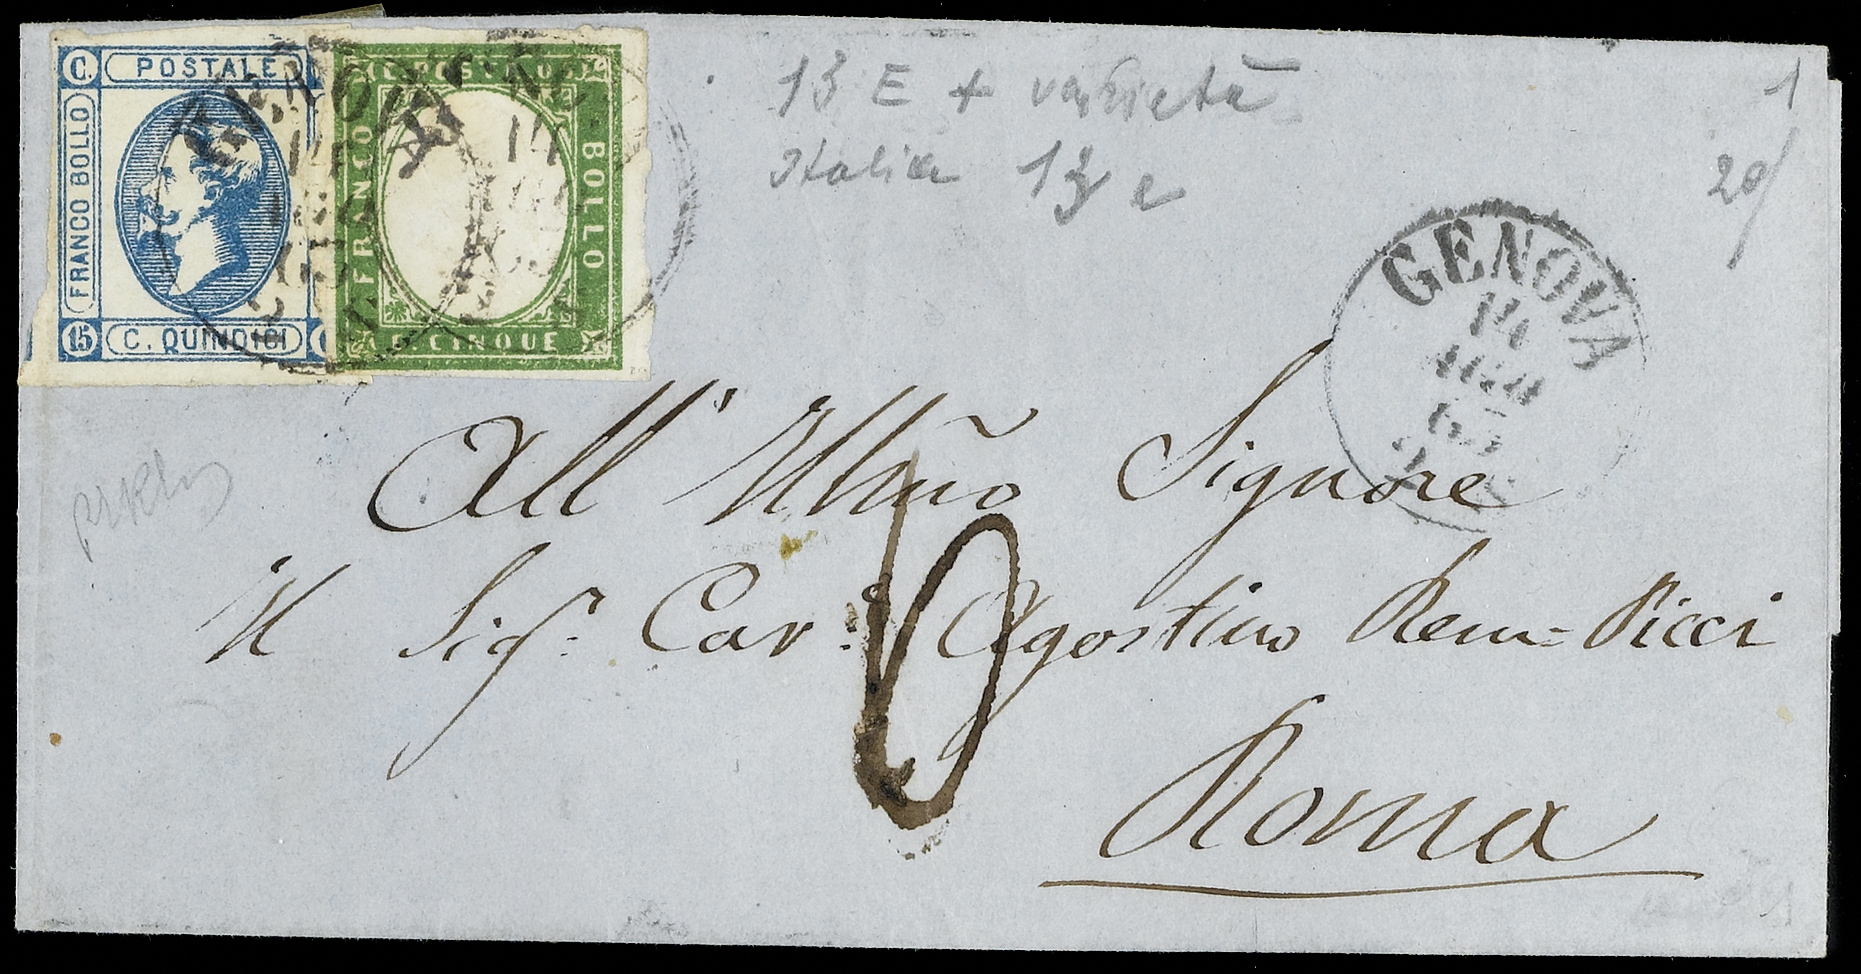 C. POSTALE
FRANCO BOLLO
15 C. QUINDICI
C. POSTALE
FRANCO
BOLLO
C. CINQUE
13 E + varietà
Italia 13 e
1
20/
GENOVA
14
63
All' Illmo Signore
Il Sigr. Cav. Agostino Rem-Picci
Roma